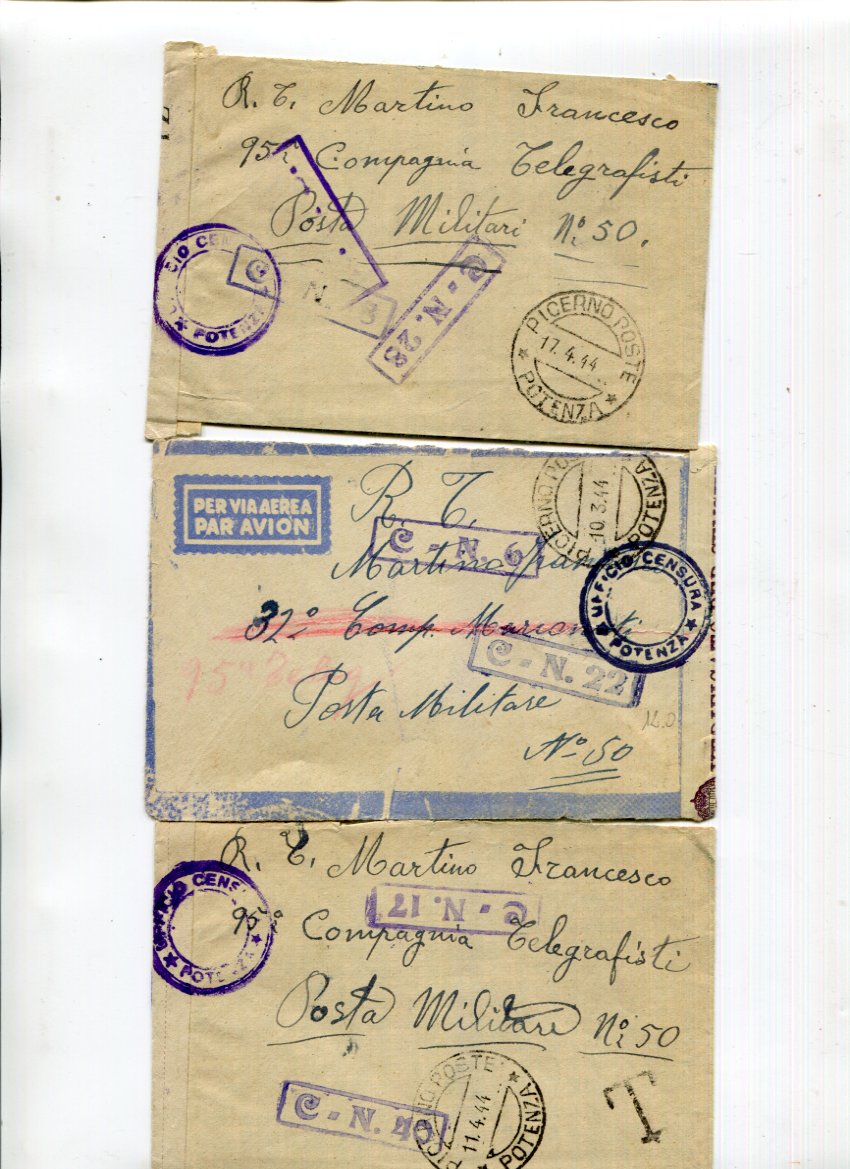 R. T. Martino Francesco
95ª Compagnia Telegrafisti
Posta Militari Nº 50.
UFFICIO CENS
POTENZA
C
N.
C - N. 23
PICERNO POSTE
17.4.44
POTENZA
PER VIA AEREA
PAR AVION
R. T.
C - N. 6
PICERNO PO
10.3.44
POTENZA
Martino
UFFICIO CENSURA
POTENZA
32º Comp. Marconisti
C - N. 22
95ª
Posta Militare
Nº 50
R. T. Martino Francesco
UFFICIO CENS
POTENZA
C - N. 17
95ª Compagnia Telegrafisti
Posta Militare Nº 50
C - N. 40
PICERNO POSTE
11.4.44
POTENZA
T